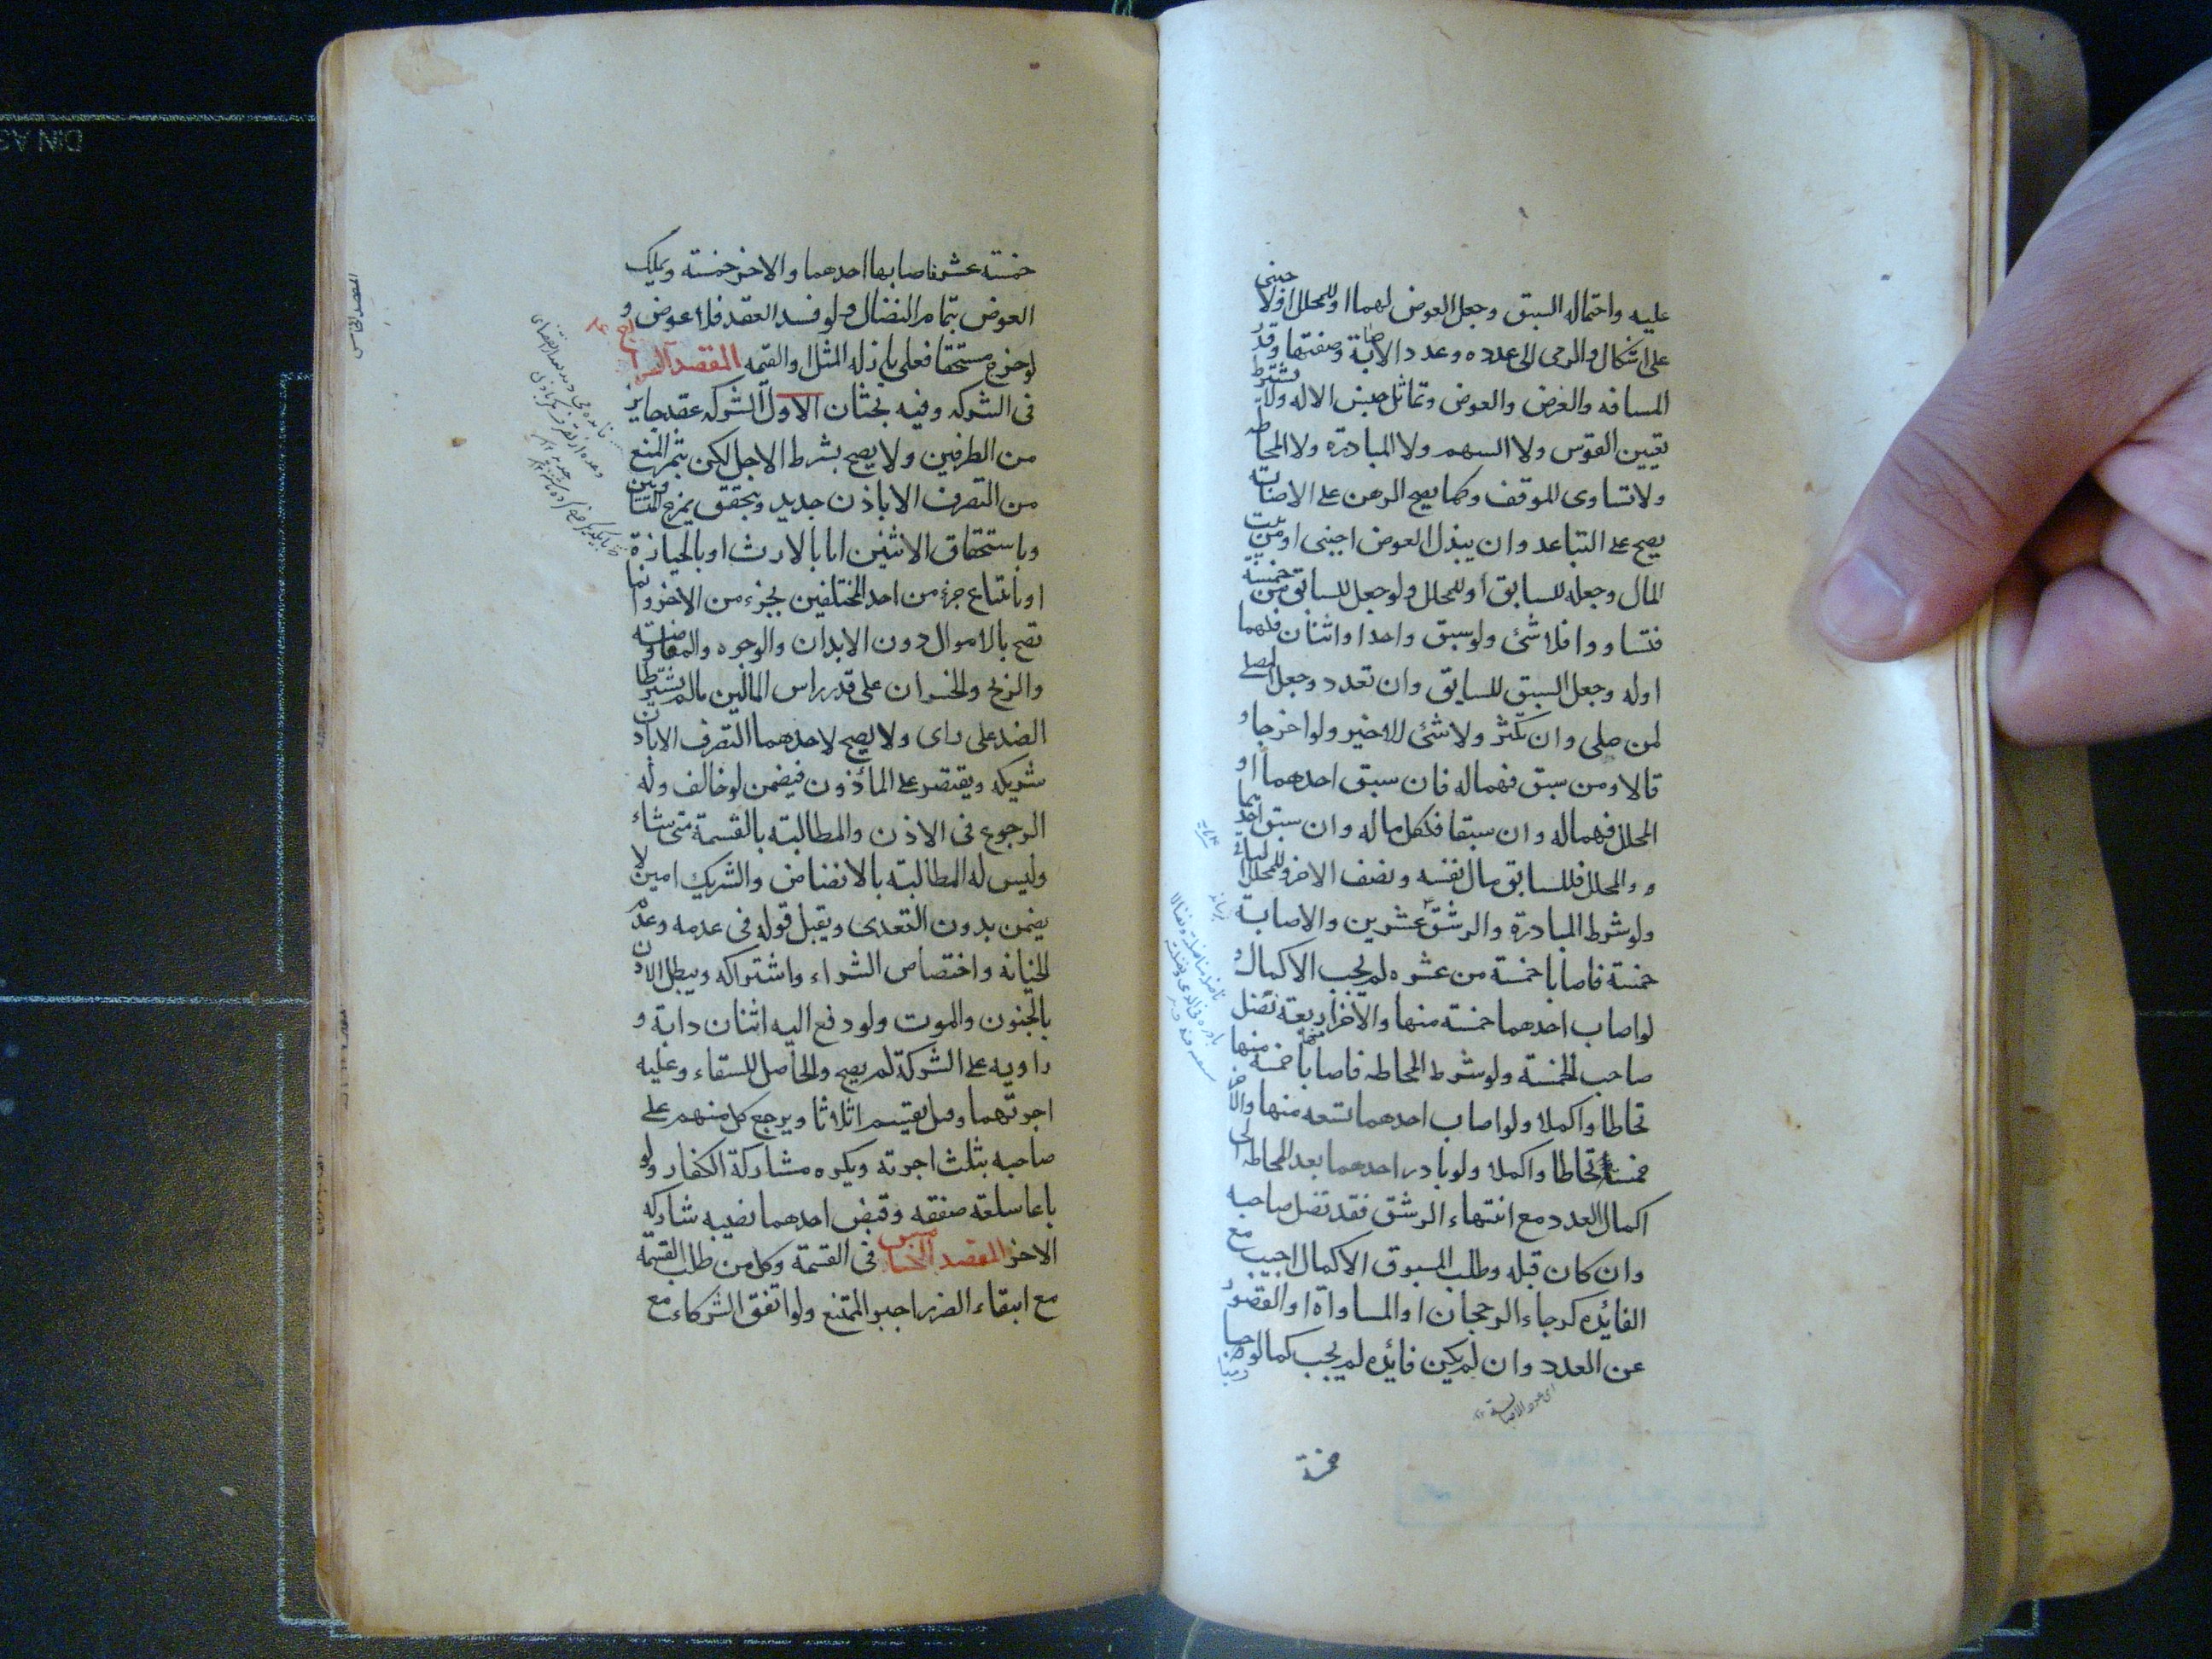 عليه واحتماله السبق وجعل العوض لهما او للمحلل او لاجنبى
على اشكال والرمى الى عدده وعدد الاصابة وصفتها وقدر
المسافه والغرض والعوض وتماثل جنس الاله ولا يشترط
تعيين القوس ولا السهم ولا المبادرة ولا المحاطه
ولا تساوى الموقف وكما يصح الرهن على الاصابت
يصح على التباعد وان يبذل العوض اجنبى او من بيت
المال وجعله للسابق او للمحلل ولو جعل للسابق من خمسة
فتساووا فلا شئ ولو سبق واحدا واثنان فلهما
اوله وجعل السبق للسابق وان تعدد وجعل المصلى
لمن صلى وان تكثر ولا شئ للاخير ولو اخرجا و
قالا ومن سبق فهما له فان سبق احدهما او
المحلل فهما له وان سبقا فلكل ماله وان سبق احدهما
و والمحلل فللسابق مال نفسه ونصف الاخر وللمحلل الباقى
ولو شرط المبادرة والرشق عشرين والاصابة
خمسة فاصابا خمسة من عشره لم يجب الاكمال و
لو اصاب احدهما خمسة منها والاخر اربعة نضل
صاحب الخمسة ولو شرط المحاطه فاصابا خمسة منها
تحاطا واكملا ولو اصاب احدهما تسعه منها والاخر
خمسة تحاطا واكملا ولو بادر احدهما بعد المحاطه الى
اكمال العدد مع انتهاء الرشق فقد نضل صاحبه
وان كان قبله وطلب المسبوق الاكمال اجيب مع
الفائده كرجاء الرجحان او المساواة او القصور
عن العدد وان لم يكن فائده لم يجب كما لو
اى عدد الاصابة
خمسة
خمسة عشر فاصابها احدهما والاخر خمسة ويملك
العوض بتمام النضال ولو فسد العقد فلا عوض و
لو خرج مستحقا فعلى باذله المثل او القيمه المقصد الرابع
فى الشركه وفيه بحثان الاول الشركه عقد جايز
من الطرفين ولا يصح بشرط الاجل لكن يثمر المنع
من التصرف الا باذن جديد ويتحقق بمزج المتساويين
وباستحقاق الاثنين اما بالارث او بالحيازة
او بابتياع جزء من احد المختلفين بجزء من الاخر وانما
تصح بالاموال دون الابدان والوجوه والمفاوضته
والربح والخسران على قدر راس المالين مالم يشترطا
الضد على راى ولا يصح لاحدهما التصرف الا باذن
شريكه ويقتصر على المأذون فيضمن لو خالف وله
الرجوع فى الاذن والمطالبته بالقسمة متى شاء
وليس له المطالبته بالانضاض والشريك امين لا
يضمن بدون التعدى ويقبل قوله فى عدمه وعدم
الخيانه واختصاص الشراء واشتراكه ويبطل الاذن
بالجنون والموت ولو دفع اليه اثنان دابة و
راويه على الشركة لم يصح والحاصل للسقاء وعليه
اجرتهما وقيل يقسم اثلاثا ويرجع كل منهم على
صاحبه بثلث اجرته ويكره مشاركة الكفار ولو
باعا سلعة صفقه وقبض احدهما نصيبه شاركه
الاخر المقصد الخامس فى القسمة وكل من طلب القسمة
مع انتفاء الضرر اجبر الممتنع ولو اتفق الشركاء مع
المقصد الخامس